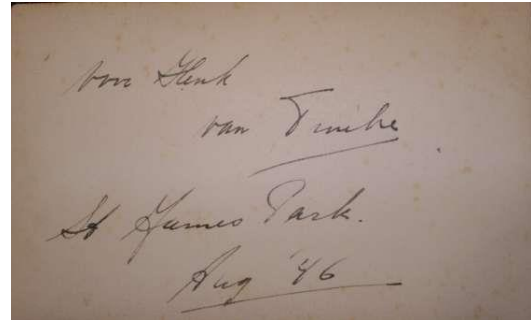 voor Henk
van Tinihe
St James Park.
Aug '46